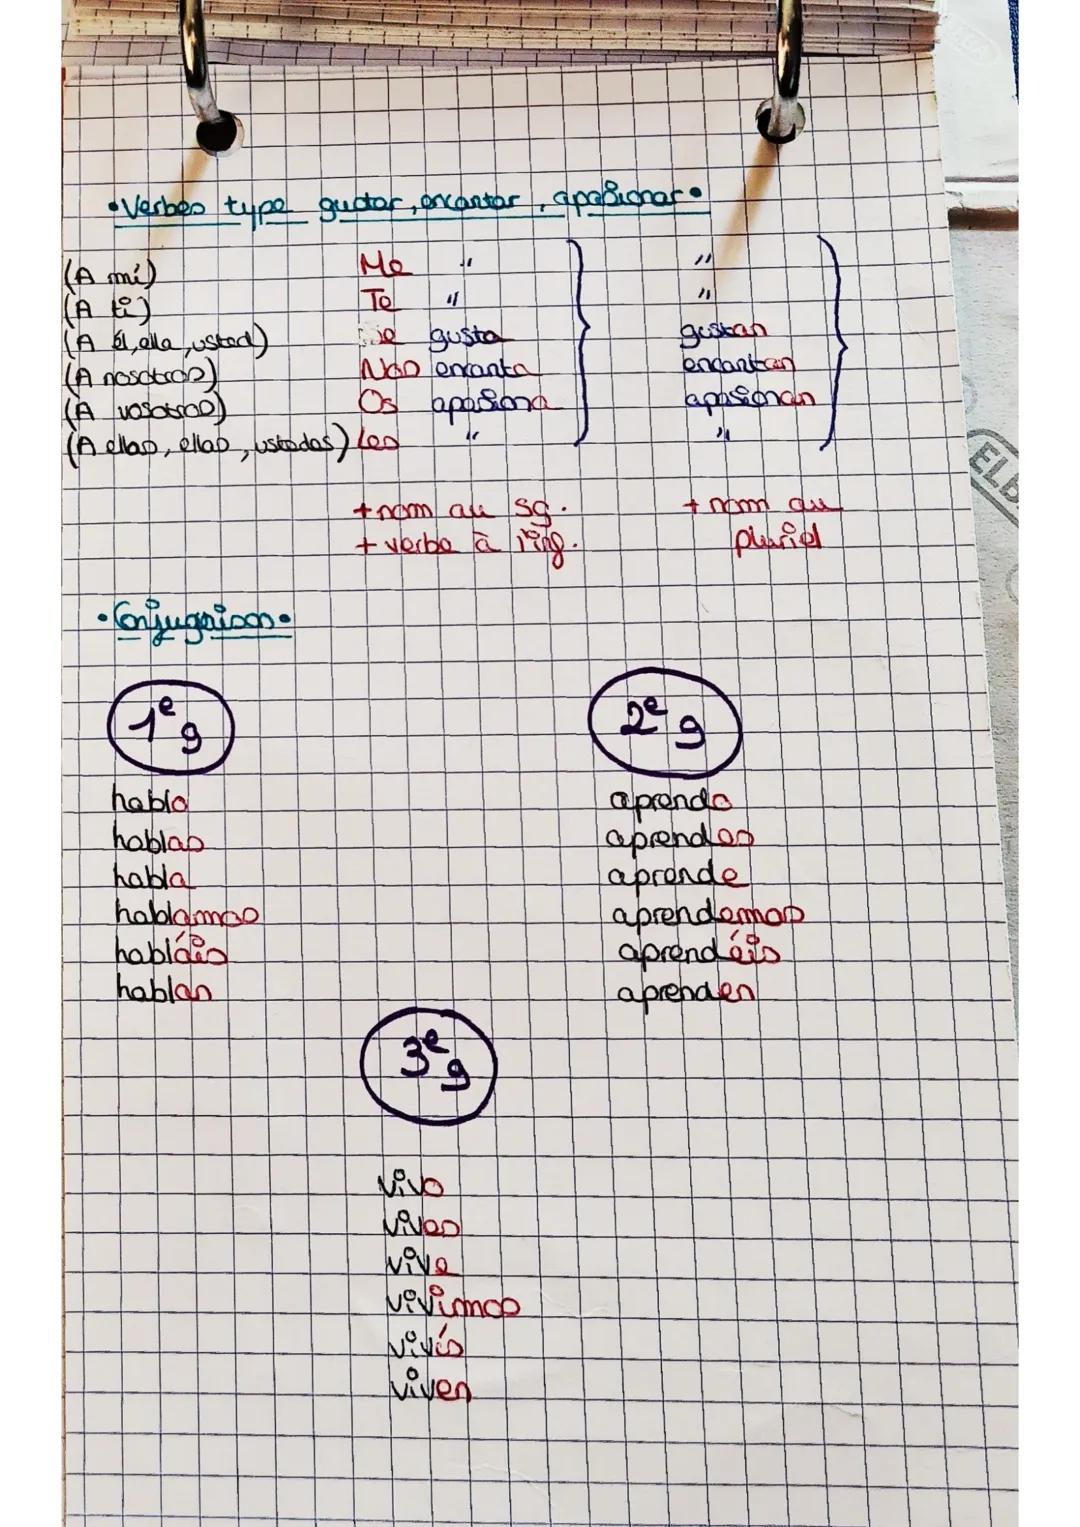 • Verbes type gustar, encantar, apasionar •
(A mí) Me " "
(A ti) Te " "
(A él, ella, usted) Se gusta gustan
(A nosotros) Nos encanta encantan
(A vosotros) Os apasiona apasionan
(A ellos, ellas, ustedes) Les " "
+ nom au sg. + nom au
+ verbe à l'ing. pluriel
• Conjugaison •
1e g 2e g
hablo aprendo
hablas aprendes
habla aprende
hablamos aprendemos
habláis aprendéis
hablan aprenden
3e g
vivo
vives
vive
vivimos
vivís
viven